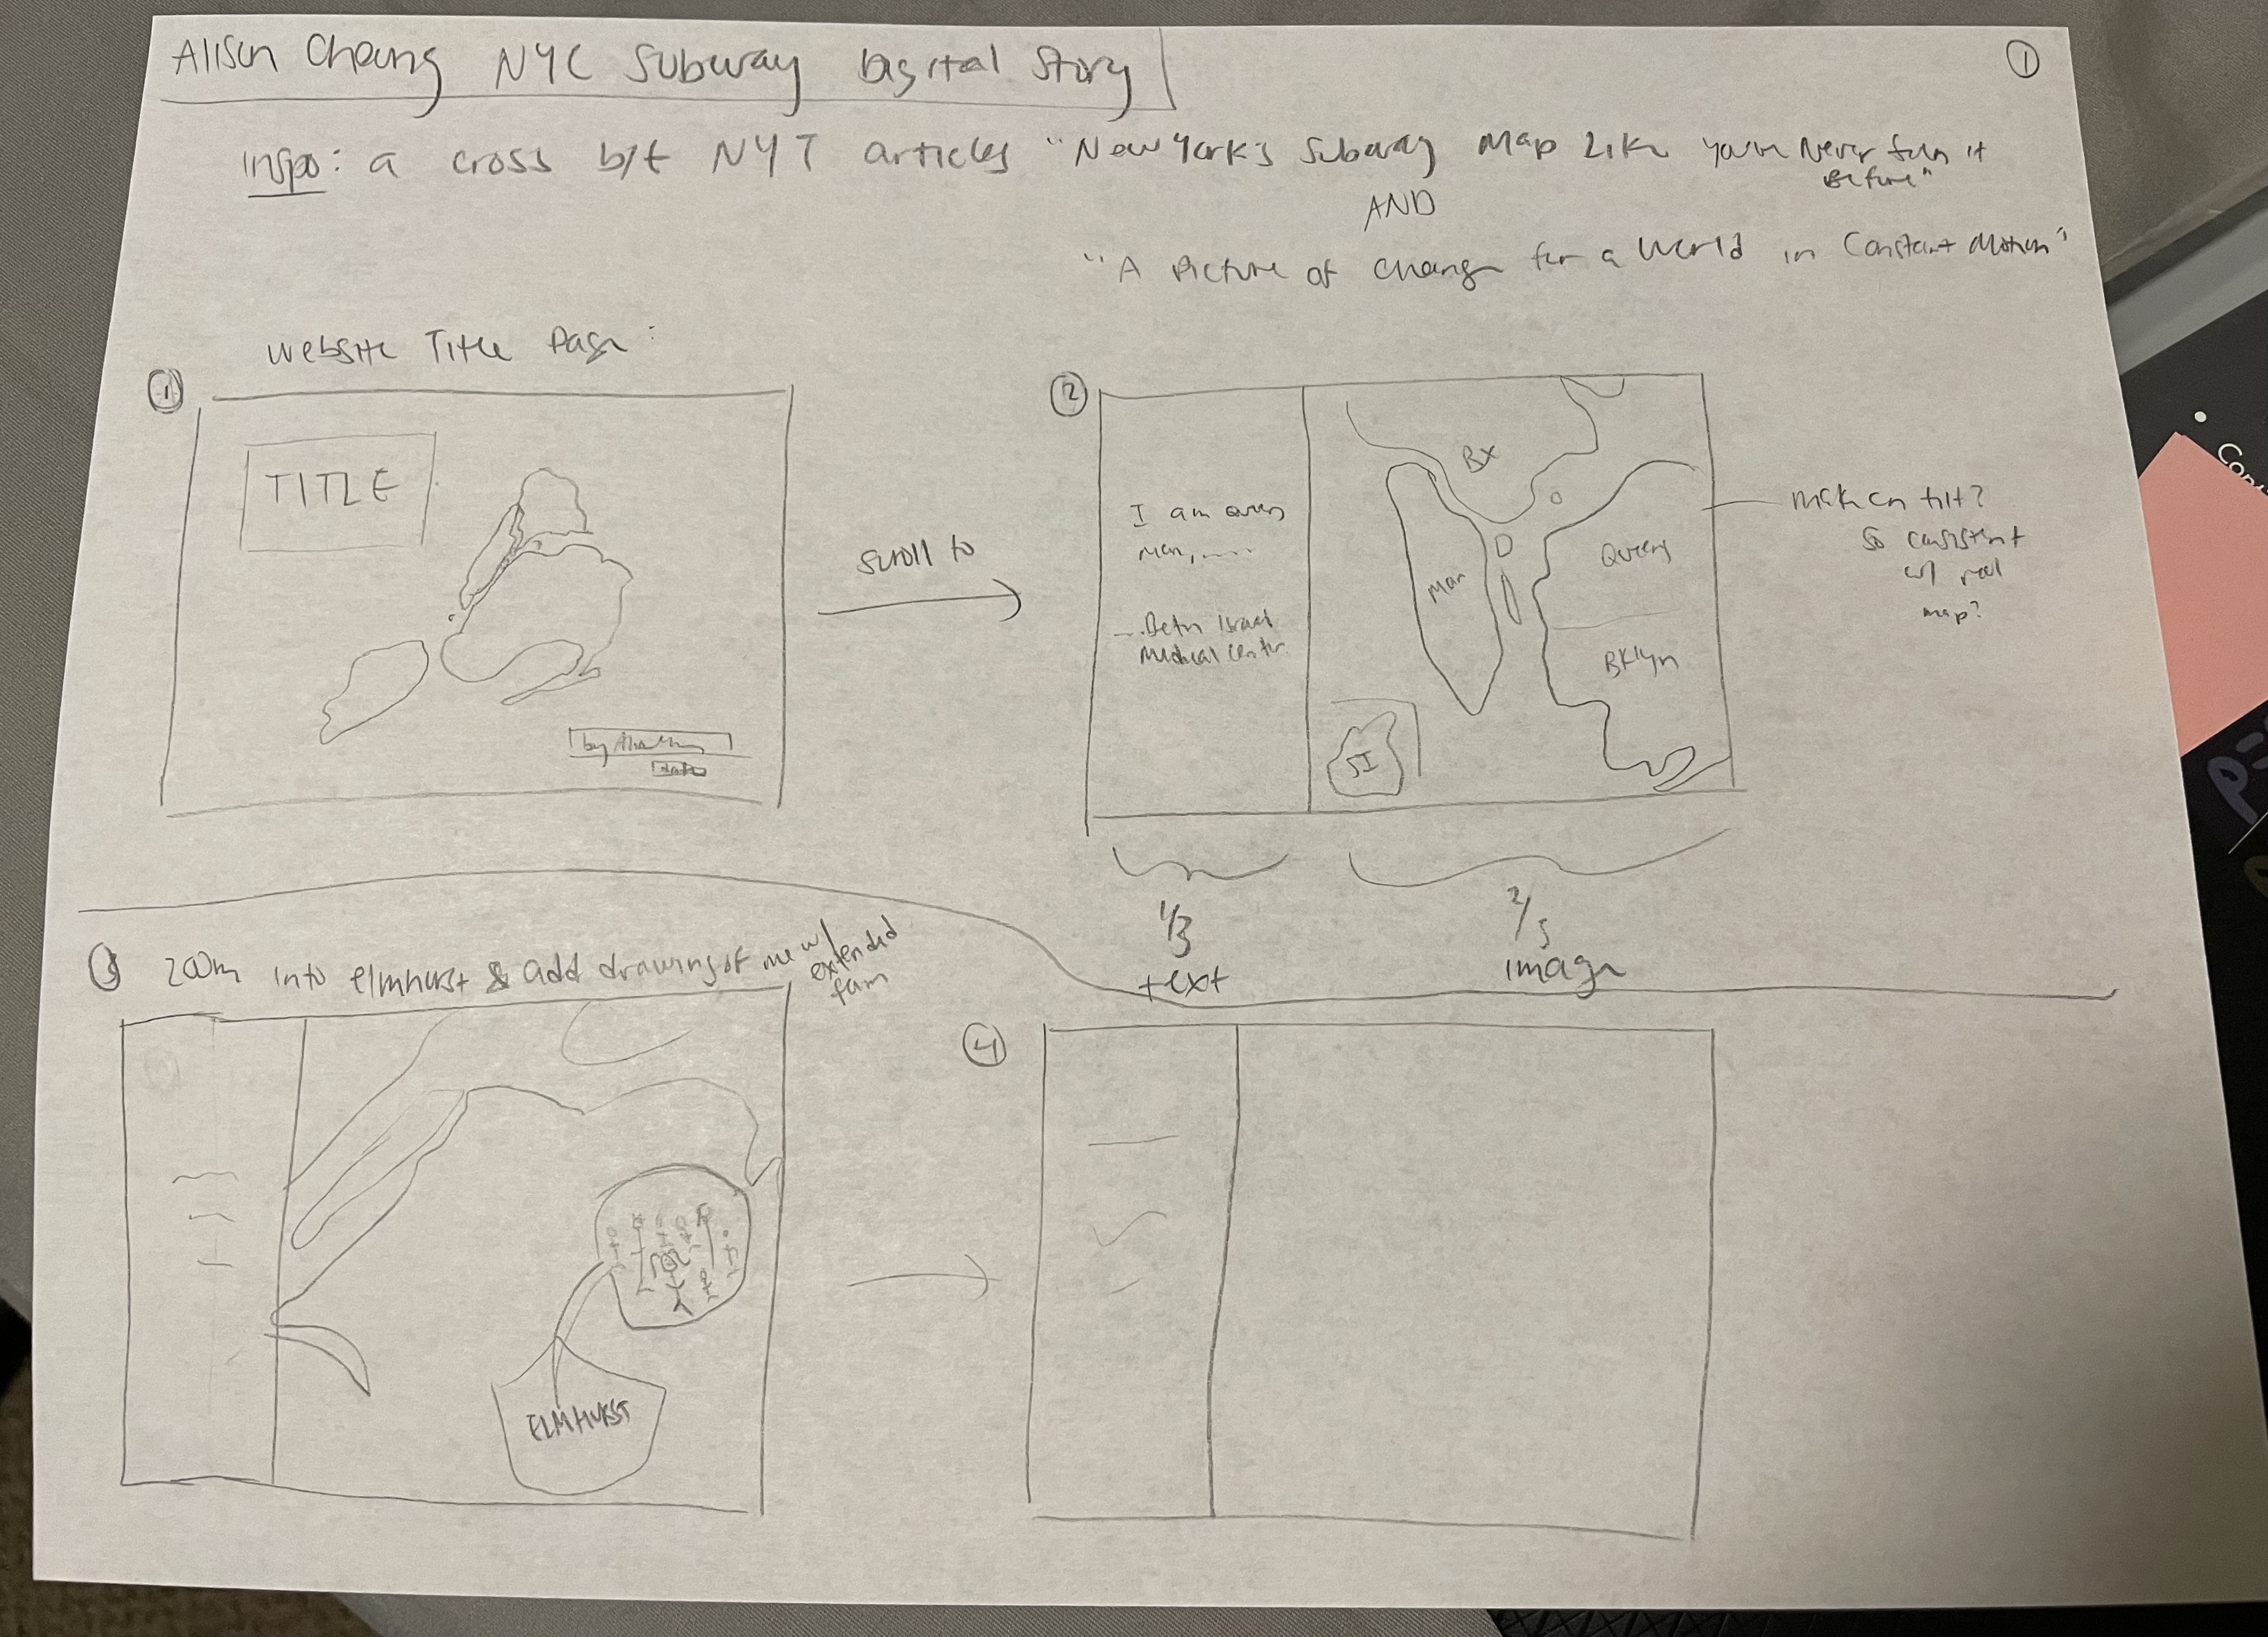 Alison Cheung NYC Subway Digital Story
①
inspo: a cross b/t NYT articles "New York's Subway Map Like You've Never Seen it
Before"
AND
"A Picture of Change for a World in Constant Motion"
Website Title Page:
①
TITLE
by
scroll to
②
I am
Beth Israel
Medical Center
Bx
Man
Queens
Bklyn
SI
make on tilt?
so consistent
w/ real
map?
1/3
text
image
③ zoom into elmhurst & add drawing of me w/
extended
fam
ELMHURST
④